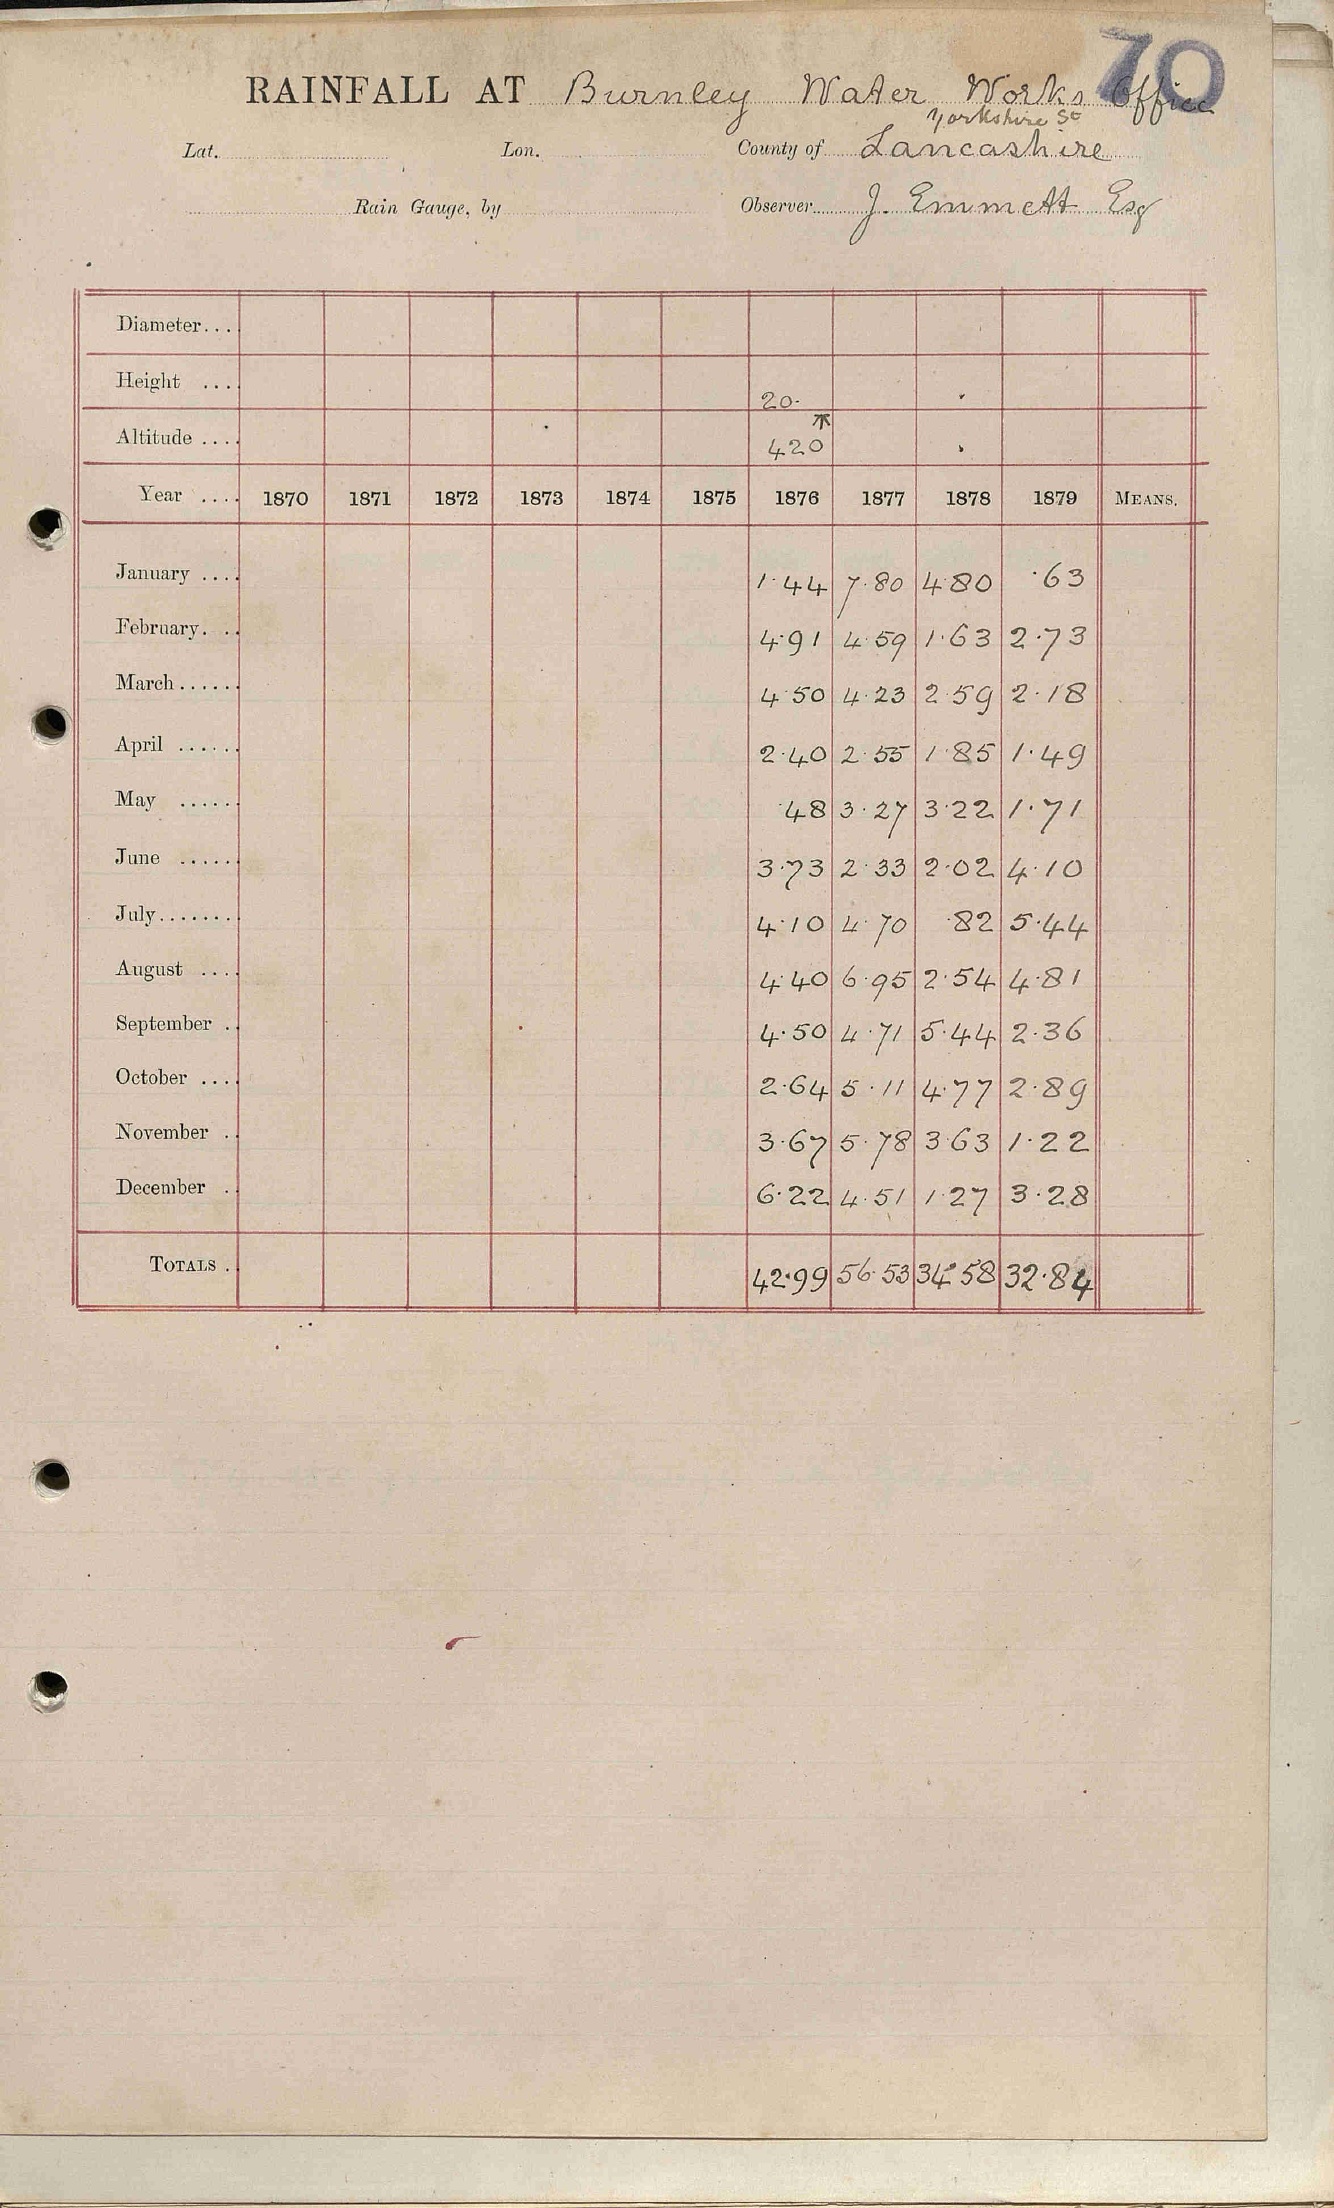 70
RAINFALL AT Burnley Water Works Office
Yorkshire St
Lat. Lon. County of Lancashire
Rain Gauge, by Observer J. Emmett Esq
Diameter...
Height .... 20.
Altitude .... 420
Year .... 1870 1871 1872 1873 1874 1875 1876 1877 1878 1879 MEANS.
January .... 1.44 7.80 4.80 .63
February. .. 4.91 4.59 1.63 2.73
March...... 4.50 4.23 2.59 2.18
April ...... 2.40 2.55 1.85 1.49
May ...... .48 3.27 3.22 1.71
June ...... 3.73 2.33 2.02 4.10
July........ 4.10 4.70 .82 5.44
August .... 4.40 6.95 2.54 4.81
September .. 4.50 4.71 5.44 2.36
October .... 2.64 5.11 4.77 2.89
November .. 3.67 5.78 3.63 1.22
December .. 6.22 4.51 1.27 3.28
TOTALS .. 42.99 56.53 34.58 32.84